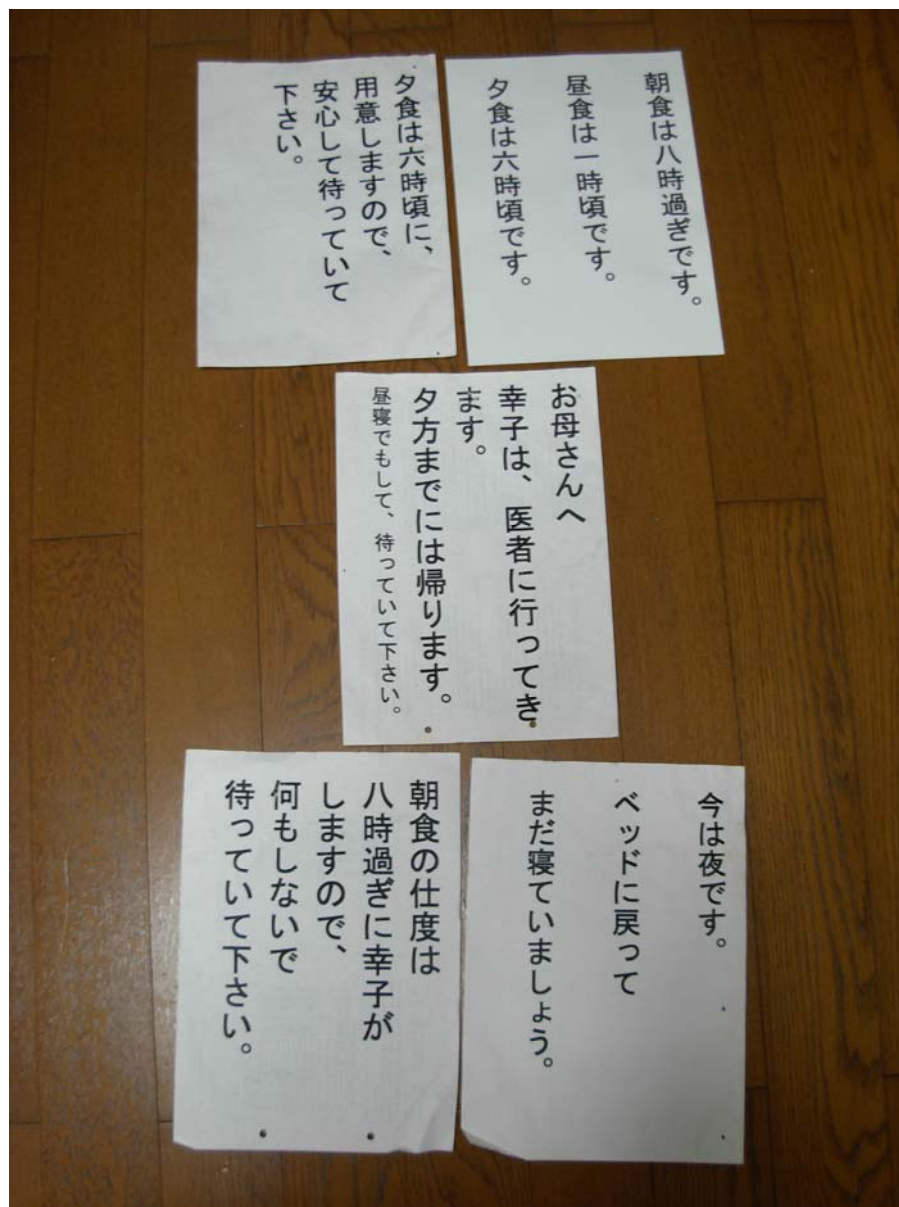 朝食は八時過ぎです。
昼食は一時頃です。
夕食は六時頃です。
夕食は六時頃に、
用意しますので、
安心して待っていて
下さい。
お母さんへ
幸子は、医者に行ってき
ます。
夕方までには帰ります。
昼寝でもして、待っていて下さい。
今は夜です。
ベッドに戻って
まだ寝ていましょう。
朝食の仕度は
八時過ぎに幸子が
しますので、
何もしないで
待っていて下さい。